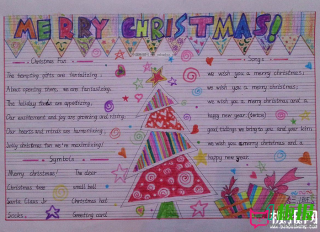 MERRY CHRISTMAS!
Christmas Fun
The tempting gifts are tantalizing.
This holiday foods are appetizing,
Our excitement and joy are growing and rising.
Our hearts and minds are humanizing,
Symbols
Merry Christmas! The door
Christmas tree small bell
Santa Claus Jr Christmas ball
Socks, Greeting card
Song
we wish you a merry christmas;
we wish you a merry christmas;
we wish you a merry christmas and a
happy new year. (twice)
good tidings we bring to you and your kin;
we wish you a merry christmas and a
happy new year.